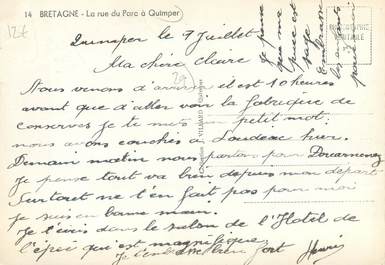 14 BRETAGNE - La rue du Parc à Quimper
12€
Quimper le 9 Juillet
Ma chère Claire
29
Nous venons d'arriver il est 10 heures
avant que d'aller voir la fabrique de
conserves je te mets un petit mot.
nous avons couchés à Loudeac hier.
Demain matin nous partons pour Douarnenez
Je pense tout va bien depuis mon départ
Surtout ne t'en fait pas pour moi
je suis en bonne main.
Je t'écris dans le salon de l'Hotel de
l'épée qui est magnifique
Je t'embrasse bien fort
Je pense
que ma
puce est
sage
Embrasse
les enfants
pour moi